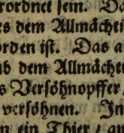 rordnet sein.
es Allmächti
orden ist. Das a
nd dem Allmächt
s Versöhnopffer,
versöhnen. In
n ein Thier/